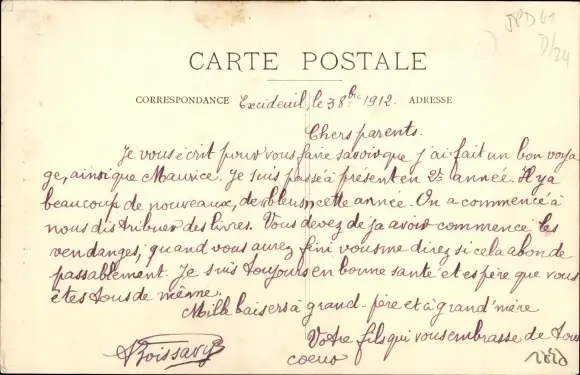 JPD 61
D/24
CARTE POSTALE
CORRESPONDANCE Excideuil, le 3 8bre 1912. ADRESSE
Chers parents.
Je vous écrit pour vous faire savoir que j'ai fait un bon voya
ge, ainsi que Maurice. Je suis passé à présent en 2e année. Il y a
beaucoup de nouveaux, de «bleus» cette année. On a commencé à
nous distribuer des livres. Vous devez déja avoir commencé les
vendanges, quand vous aurez fini vous me direz si cela abonde
passablement. Je suis toujours en bonne santé et espère que vous
êtes tous de même.
Mille baisers à grand-père et à grand'mère
Votre fils qui vous embrasse de tous
coeur
Boissavy